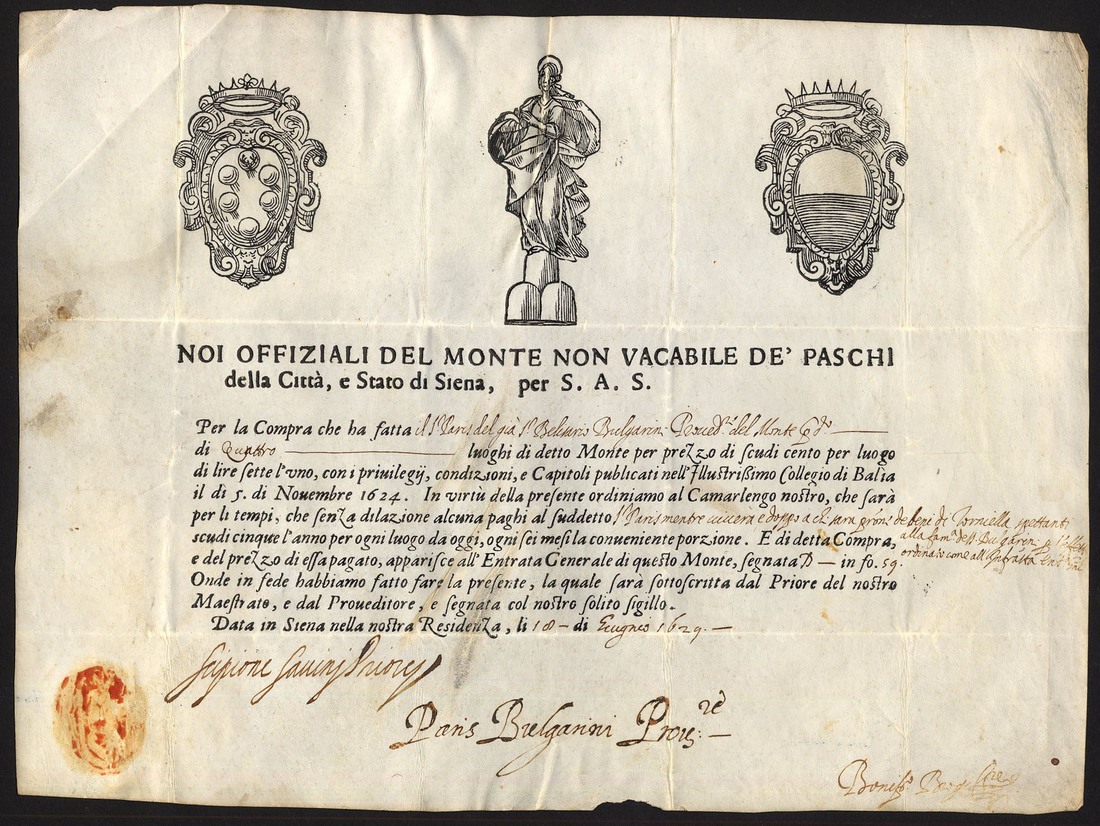 NOI OFFIZIALI DEL MONTE NON VACABILE DE' PASCHI
della Città, e Stato di Siena, per S. A. S.
Per la Compra che ha fatta il Sr Paris del già Sr Belisario Bulgarini Proved.r del Monte
di Quattro luoghi di detto Monte per prezzo di scudi cento per luogo
di lire sette l'vno, con i priuilegij, condizioni, e Capitoli publicati nell'Illustrißimo Collegio di Balìa
il dì 5. di Nouembre 1624. In virtù della presente ordiniamo al Camarlengo nostro, che sarà
per li tempi, che senza dilazione alcuna paghi al suddetto Sr Paris mentre viverà e doppo a de beni di Torniella spettanti
scudi cinque l'anno per ogni luogo da oggi, ogni sei mesi la conueniente porzione. E di detta Compra, alla Bulgarini
e del prezzo di essa pagato, apparisce all'Entrata Generale di questo Monte, segnata D — in fo. 59. ordinato
Onde in fede habbiamo fatto fare la presente, la quale sarà sottoscritta dal Priore del nostro
Maestrato, e dal Proueditore, e segnata col nostro solito sigillo.
Data in Siena nella nostra Residenza, li 18 — di Giugno 1629. —
Scipione Savini Priore
Paris Bulgarini Prov.re —